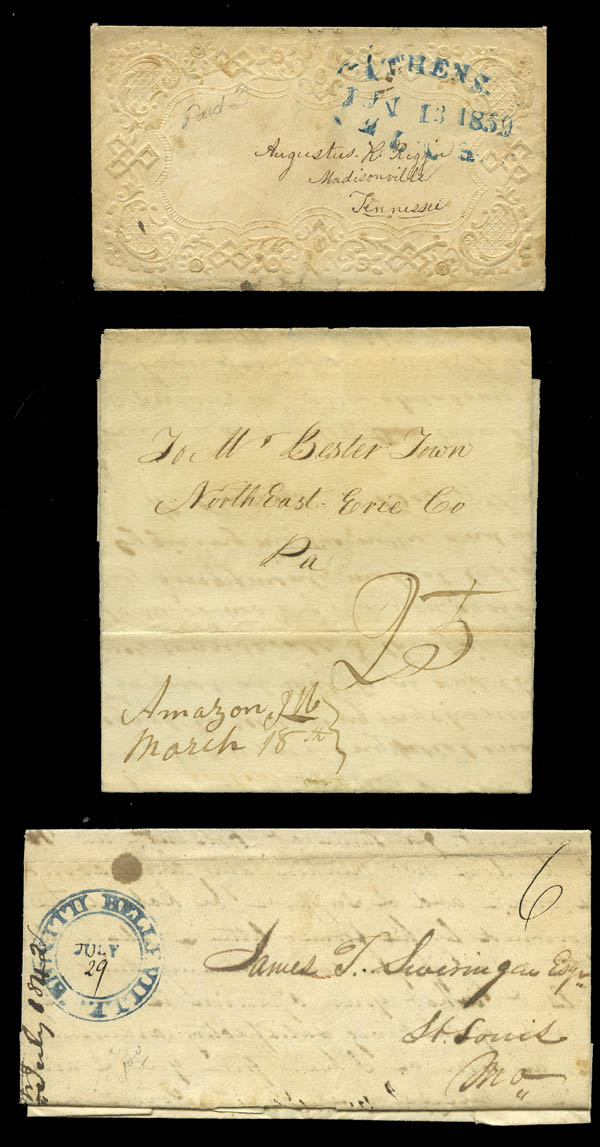 ATHENS.
JUN 13 1850
ILLS.
Paid 3
Augustus. K. Riggin
Madisonville
Tennessee
To Mr Bester Town
North East. Erie Co
Pa
25
Amazon Ill
March 18th
6
BELLEVILLE. ILLINOIS
JULY
29
July 1842
James T. Sweringen Esqr
St. Louis
Mo